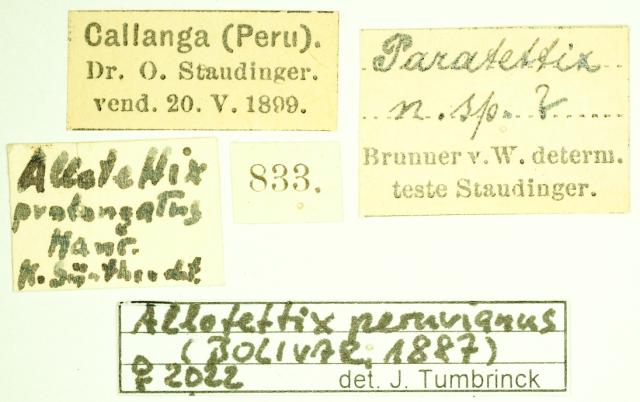 Callanga (Peru).
Dr. O. Staudinger.
vend. 20. V. 1899.
Paratettix
n. sp. ?
Brunner v. W. determ.
teste Staudinger.
Allotettix
prolongatus
Hanc.
K. Günther det.
833.
Allotettix peruvianus
(BOLIVAR, 1887)
♀ 2022 det. J. Tumbrinck